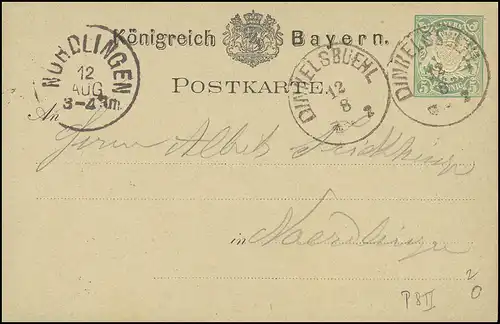 Königreich Bayern.
POSTKARTE.
NÖRDLINGEN
12
AUG
3-4Nm.
DINKELSBUEHL
12
8
2
DINKELSBUEHL
12
8
2
BAYERN
5 PFENNIG 5
An
Herrn Albert
in Noerdlingen
P8II
20